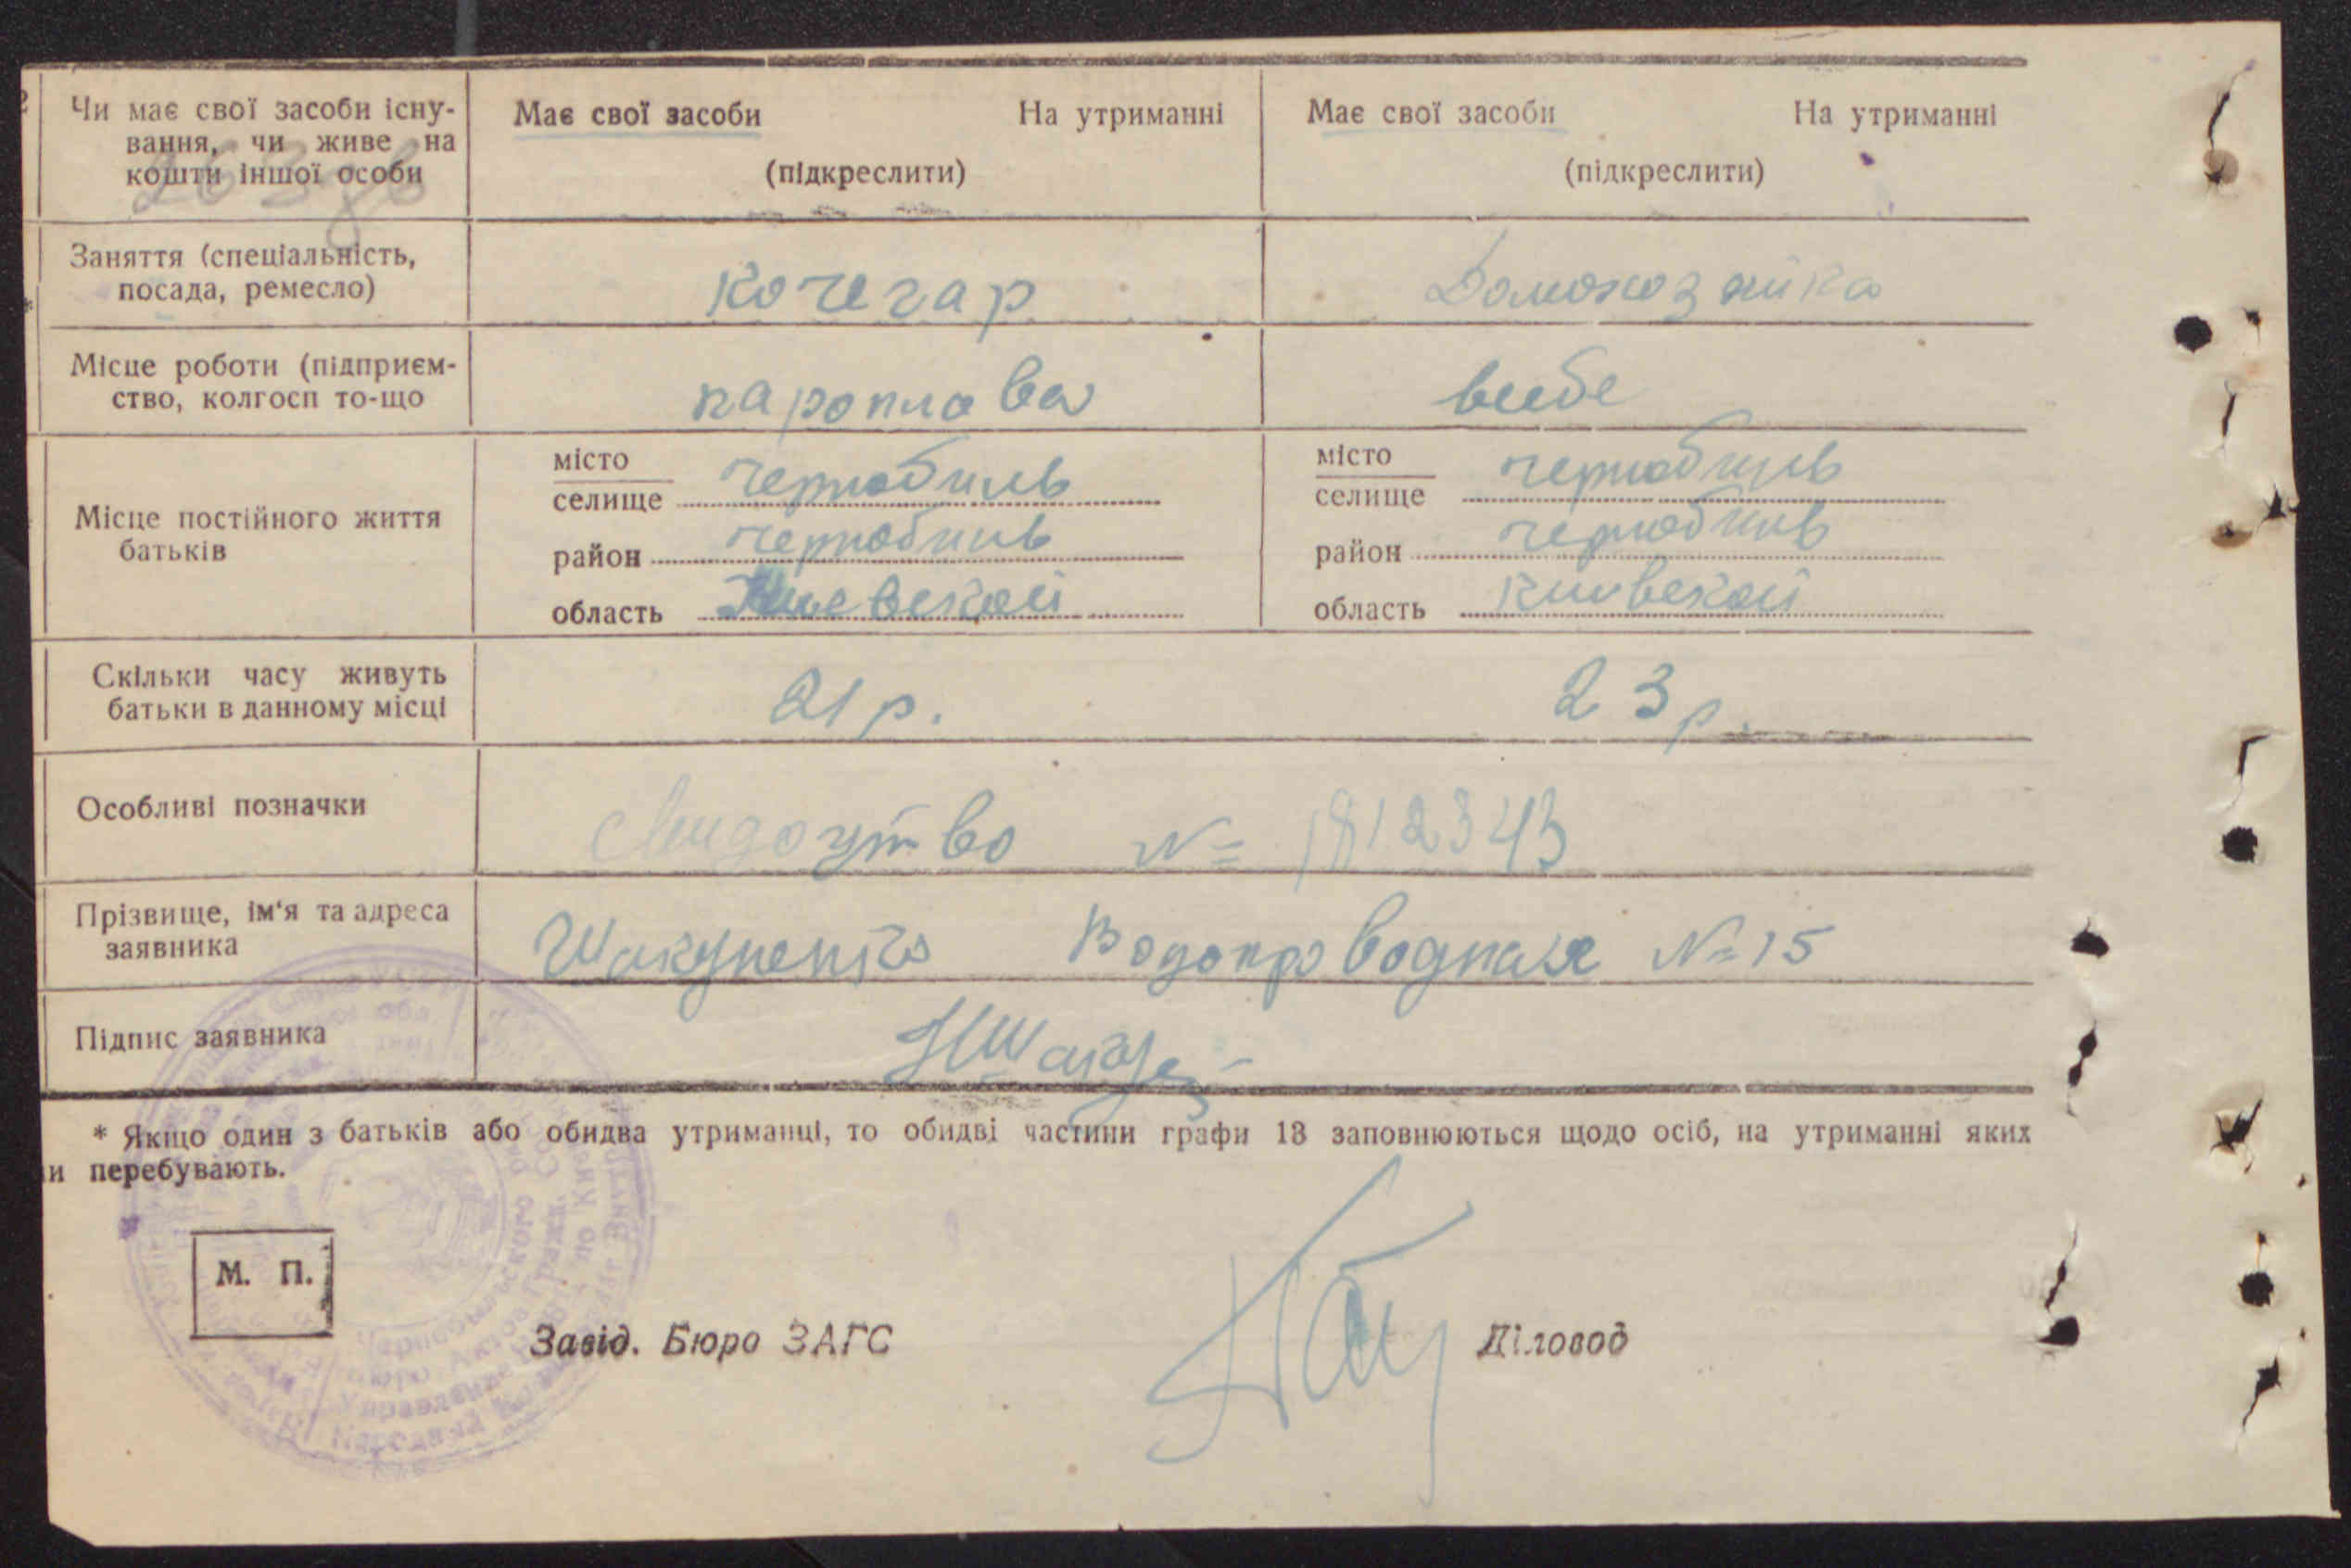 Чи має свої засоби існу-
вання, чи живе на
кошти іншої особи
Має свої засоби На утриманні
(підкреслити)
Має свої засоби На утриманні
(підкреслити)
Заняття (спеціальність,
посада, ремесло)
Кочегар
Домохозяйка
Місце роботи (підприєм-
ство, колгосп то-що
пароплава
Місце постійного життя
батьків
місто
селище Чернобиль
район Чернобиль
область Киевской
місто
селище Чернобиль
район Чернобиль
область Киевской
Скільки часу живуть
батьки в данному місці
21 р.
23 р.
Особливі позначки
№ 1812343
Прізвище, ім'я та адреса
заявника
Водопроводная № 15
Підпис заявника
* Якщо один з батьків або обидва утриманці, то обидві частини графи 13 заповнюються щодо осіб, на утриманні яких
и перебувають.
М. П.
Завід. Бюро ЗАГС
Діловод